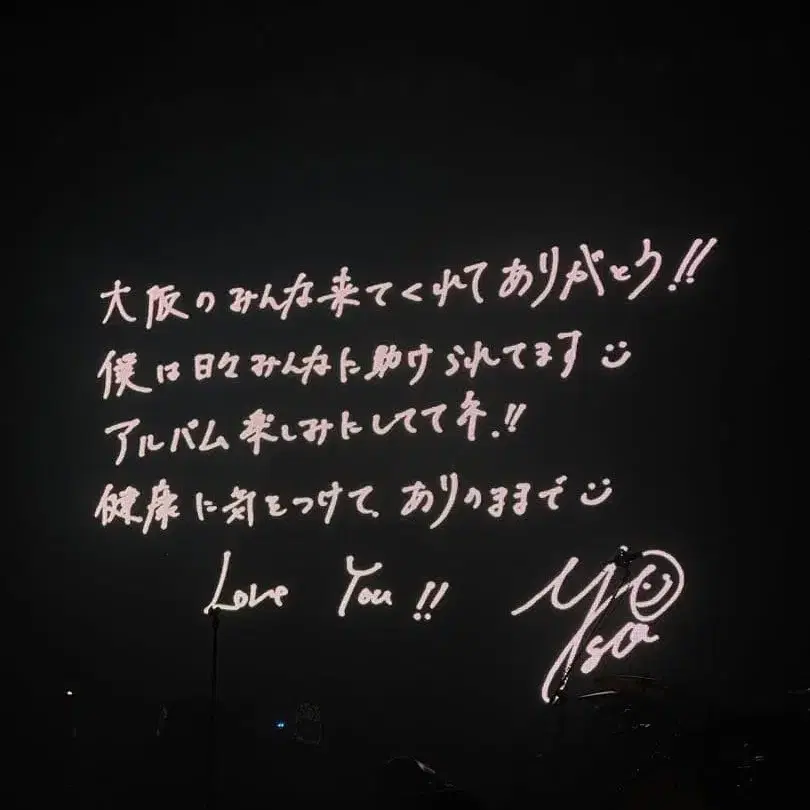 大阪のみんな来てくれてありがとう!!
僕は日々みんなに助けられてます
アルバム楽しみにしててネ.!!
健康に気をつけて、ありのままで
Love You!!